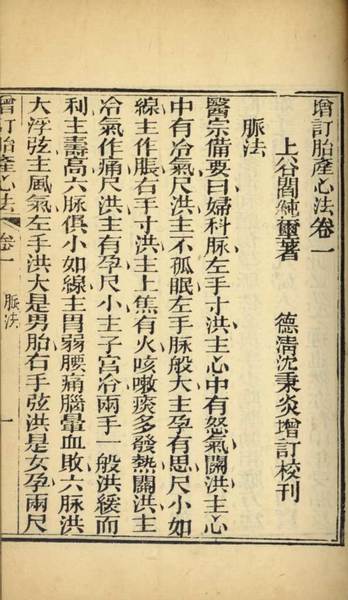 增訂胎產心法卷一
上谷閻純璽著　德清沈秉炎增訂校刊
脈法
醫宗備要曰婦科脈左手寸洪主心中有怒氣關洪主心
中有冷氣尺洪主不孤眠左手脈般大主孕有思尺小如
線主作脹右手寸洪主上焦有火咳嗽痰多發熱關洪主
冷氣作痛尺洪主有孕尺小主子宮冷兩手一般洪緩而
利主壽高六脈俱小如線主胃弱腰痛腦暈血敗六脈洪
大浮弦主風氣左手洪大是男胎右手弦洪是女孕兩尺
增訂胎產心法　卷一　脈法　一